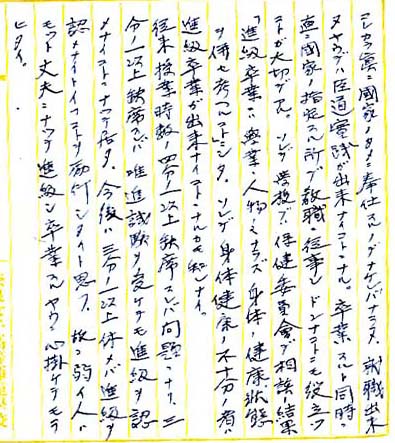 シカラバ真ニ國家ノタメ奉仕スルノデナケレバナラヌ。就職出来
ヌヤウデハ臣道實践ガ出来ナイコトニナル。卒業スルト同時ニ
直ニ國家ノ指定スル所デ教職ニ従事シドンナコトニモ役立ツ
コトガ大切デアル。ソレデ學校デハ保健委員會デ相談ノ結果
「進級卒業ハ學業、人物ノミナラズ身体ノ健康状態
ヲ併セ考フルコト」トシタ。ソレデ身体健康ノ不十分ノ者ハ
進級卒業ガ出来ナイコトニナルカモ知レナイ。
従来授業時数ノ四分ノ一以上缺席スレバ問題ニナリ、三
分ノ一以上缺席スレバ唯進試験ヲ受ケテモ進級ヲ認
メナイコトニナッテ居タ。今後ハ三分ノ一以上休メバ進級ヲ
認メナイトイフコトヲ励行シタイト思フ。故ニ弱イ人ハ
モット丈夫ニナッテ進級シ卒業スルヤウ心掛ケテモラ
ヒタイ。